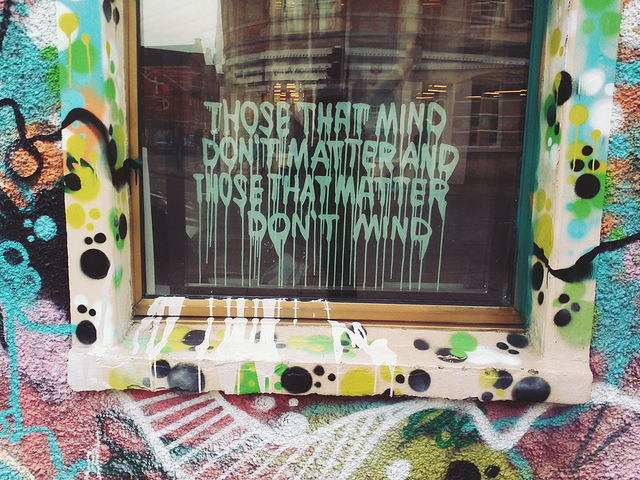 THOSE THAT MIND
DON'T MATTER AND
THOSE THAT MATTER
DON'T MIND